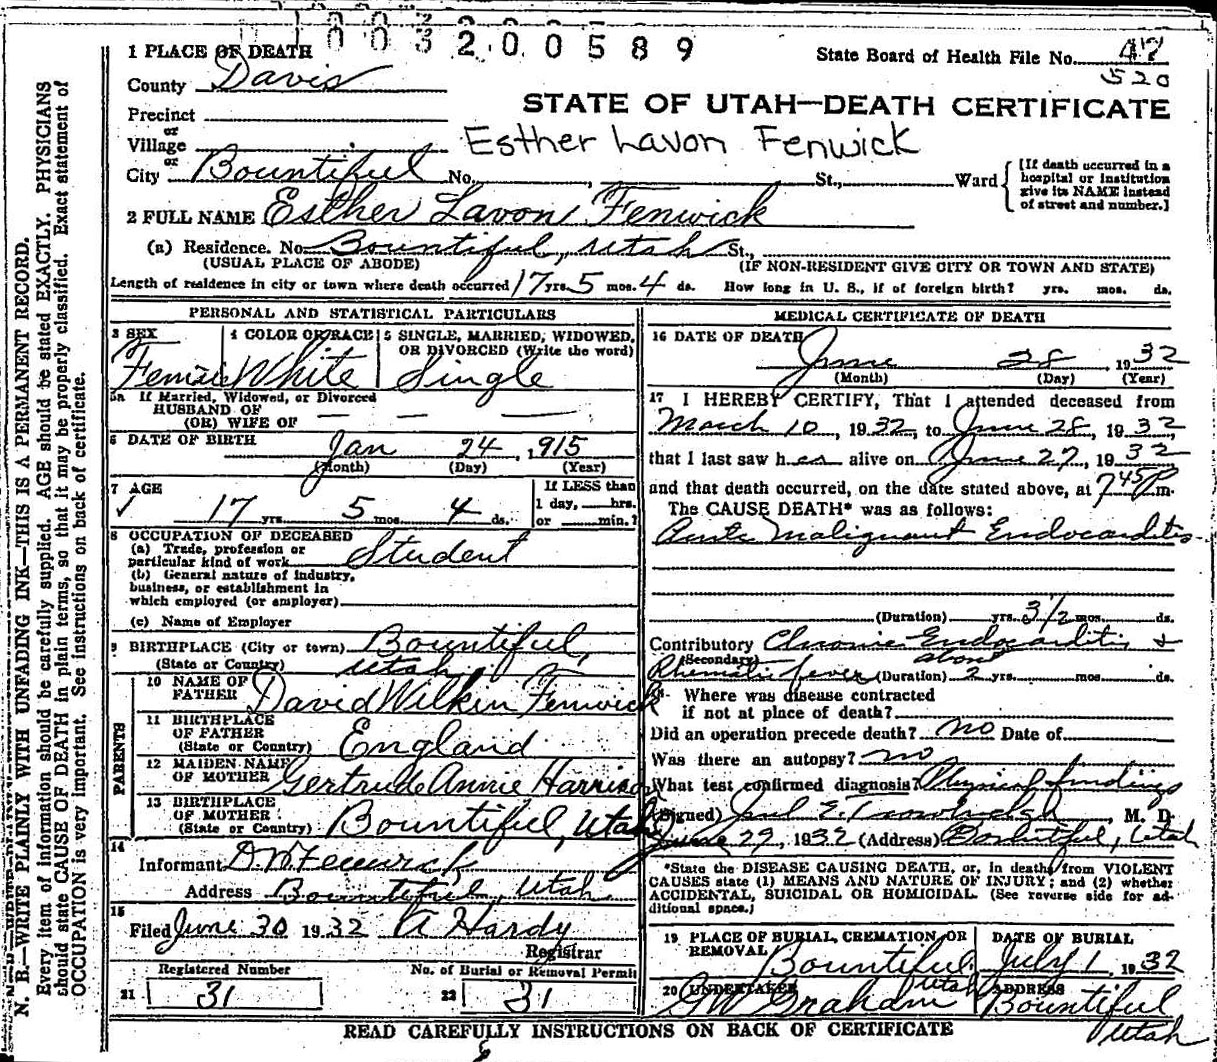 1003200589
1 PLACE OF DEATH
State Board of Health File No. 47
520
County Davis
STATE OF UTAH—DEATH CERTIFICATE
Precinct
or
Village
Esther Lavon Fenwick
or
City Bountiful No. , St., Ward
[If death occurred in a hospital or institution give its NAME instead of street and number.]
2 FULL NAME Esther Lavon Fenwick
(a) Residence. No. Bountiful, Utah St.,
(USUAL PLACE OF ABODE) (IF NON-RESIDENT GIVE CITY OR TOWN AND STATE)
Length of residence in city or town where death occurred 17 yrs. 5 mos. 4 ds. How long in U. S., if of foreign birth? yrs. mos. ds.
PERSONAL AND STATISTICAL PARTICULARS
3 SEX 4 COLOR OR RACE 5 SINGLE, MARRIED, WIDOWED, OR DIVORCED (Write the word)
Female White Single
5a If Married, Widowed, or Divorced
HUSBAND OF
(OR) WIFE OF — — —
6 DATE OF BIRTH Jan 24, 1915
(Month) (Day) (Year)
7 AGE If LESS than
1 day, hrs.
✓ 17 yrs. 5 mos. 4 ds. or min.?
8 OCCUPATION OF DECEASED
(a) Trade, profession or
particular kind of work Student
(b) General nature of industry,
business, or establishment in
which employed (or employer)
(c) Name of Employer
9 BIRTHPLACE (City or town) Bountiful,
(State or Country) Utah
PARENTS
10 NAME OF
FATHER David Wilkin Fenwick
11 BIRTHPLACE
OF FATHER
(State or Country) England
12 MAIDEN NAME
OF MOTHER Gertrude Annie Harrison
13 BIRTHPLACE
OF MOTHER
(State or Country) Bountiful, Utah
14
Informant D. W. Fenwick,
Address Bountiful, Utah
15
Filed June 30 1932 A Hardy
Registrar
Registered Number No. of Burial or Removal Permit
21 31 22 31
MEDICAL CERTIFICATE OF DEATH
16 DATE OF DEATH
June 28, 1932
(Month) (Day) (Year)
17 I HEREBY CERTIFY, That I attended deceased from
March 10, 1932, to June 28, 1932
that I last saw her alive on June 27, 1932
and that death occurred, on the date stated above, at 7 45 P m.
The CAUSE DEATH* was as follows:
Acute Malignant Endocarditis
(Duration) yrs. 3 1/2 mos. ds.
Contributory Chronic Endocarditis &
(Secondary) about
Rhematic fever (Duration) 2 yrs. mos. ds.
18 Where was disease contracted
if not at place of death?
Did an operation precede death? no Date of
Was there an autopsy? no
What test confirmed diagnosis? Physical findings
(Signed) M. D.
June 29, 1932 (Address) Bountiful, Utah
*State the DISEASE CAUSING DEATH, or, in deaths from VIOLENT
CAUSES state (1) MEANS AND NATURE OF INJURY; and (2) whether
ACCIDENTAL, SUICIDAL OR HOMICIDAL. (See reverse side for ad-
ditional space.)
19 PLACE OF BURIAL, CREMATION, OR
REMOVAL DATE OF BURIAL
Bountiful, Utah July 1, 1932
20 UNDERTAKER ADDRESS
GW Graham Bountiful
Utah
READ CAREFULLY INSTRUCTIONS ON BACK OF CERTIFICATE
N. B.—WRITE PLAINLY WITH UNFADING INK—THIS IS A PERMANENT RECORD.
Every item of information should be carefully supplied. AGE should be stated EXACTLY. PHYSICIANS
should state CAUSE OF DEATH in plain terms, so that it may be properly classified. Exact statement of
OCCUPATION is very important. See instructions on back of certificate.